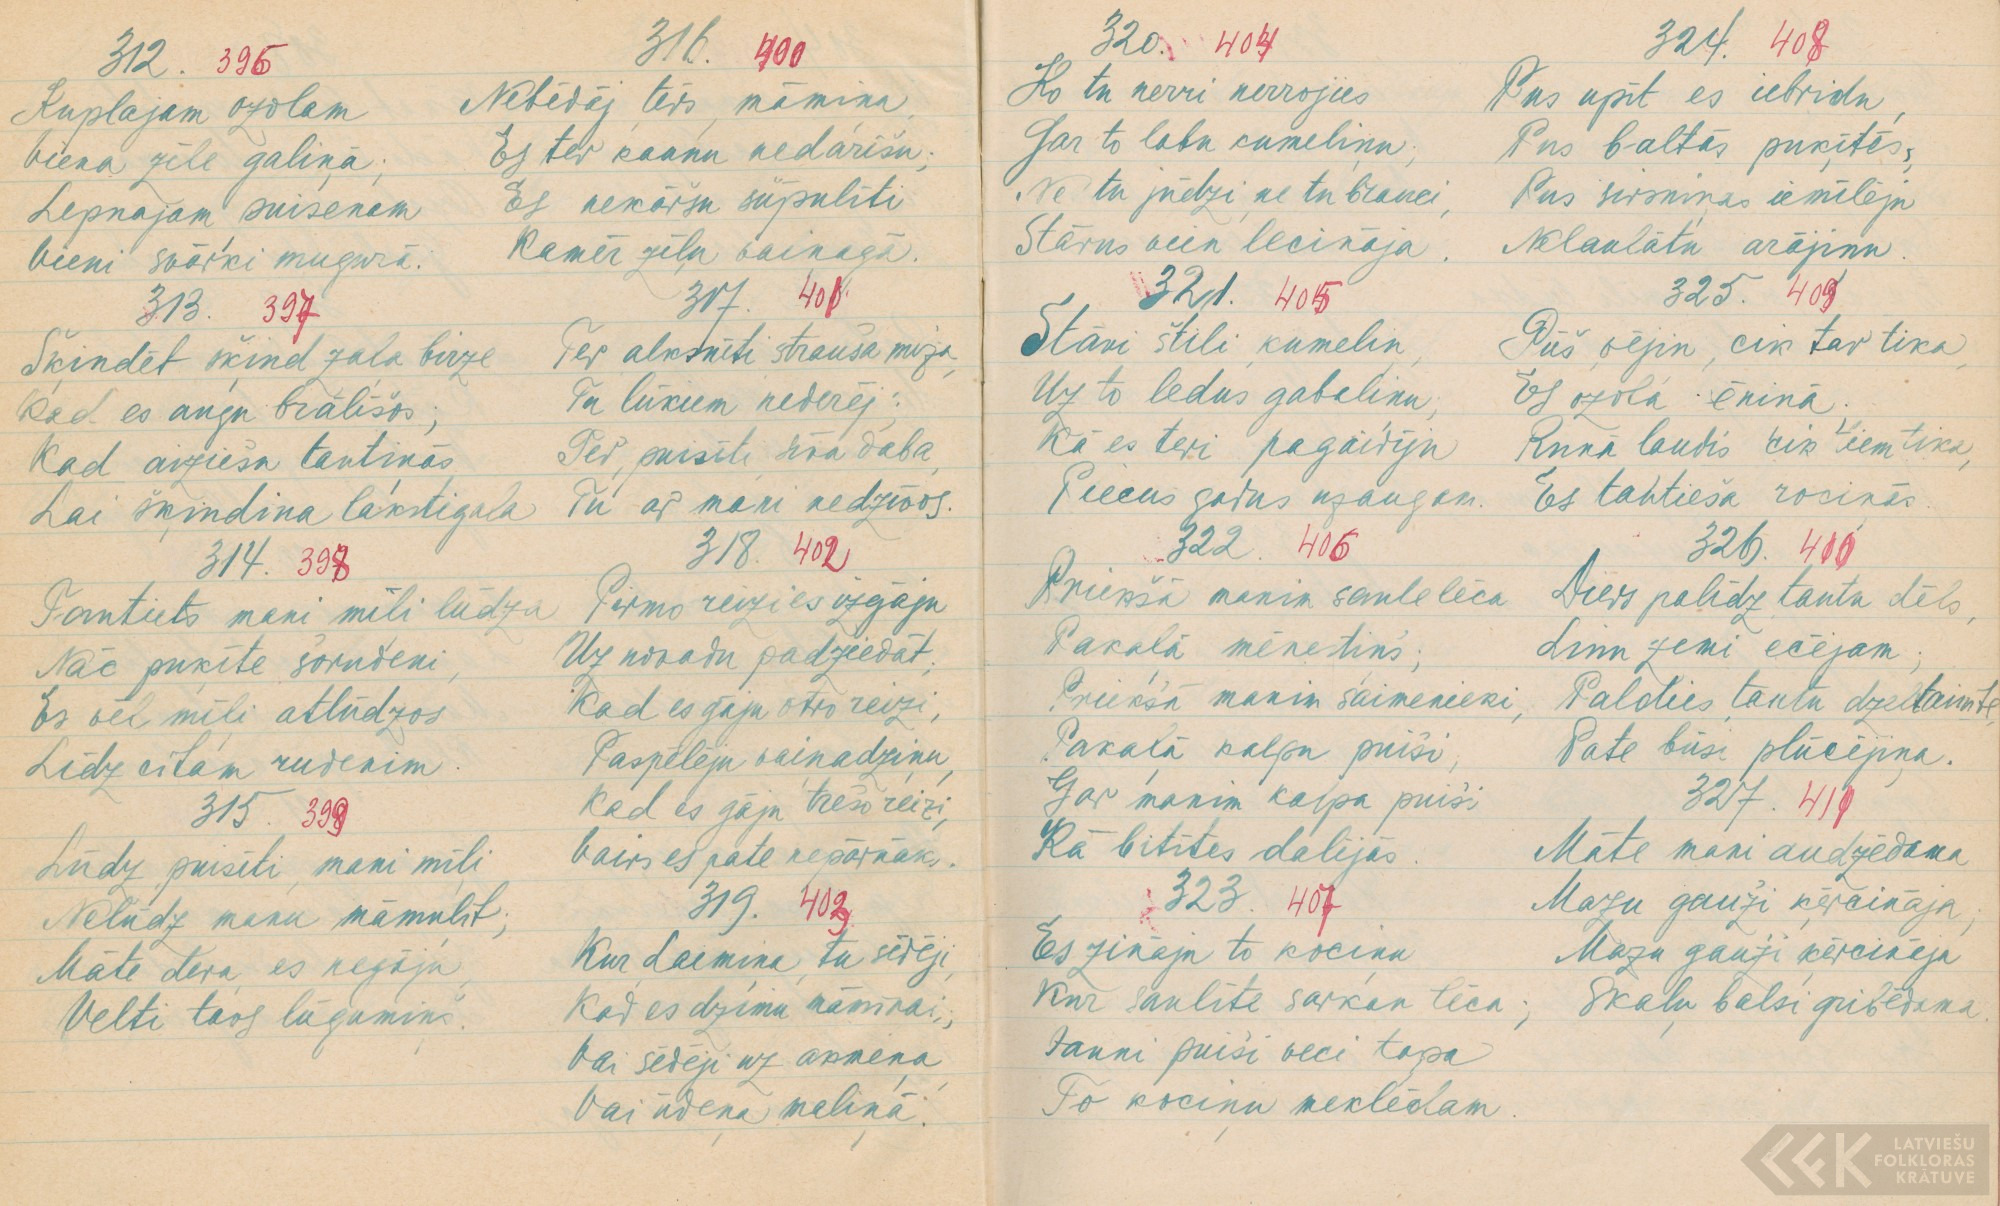 312. 396
Kuplajam ozolam
Viena zīle galiņā;
Lepnajam puisēnam
Vieni svārki mugurā.
313. 397
Šķindēt šķind zaļa birze
Kad es augu brālīšos;
Kad aiziešu tautiņās
Lai šķindina lakstīgala
314. 398
Tautiets mani mīļi lūdza
Nāc puķīte šoruden̦i,
Es vēl mīļi atlūdzos
Līdz citam rudeņim.
315. 399
Lūdz puisīti, mani mīļi
Nelūdz manu māmuliņ;
Māte deva, es negāju,
Velti tavs lūgumiņš.
316. 400
Nebēdāj, tēvs, māmiņa,
Es tev kaunu nedarīšu;
Es nekāršu šūpulīti
Kamēr zīļu vainagā.
317. 401
Tev alksnīti strauša miza,
Tu lūkiem nederēj;
Tev, puisīti, sīva daba,
Tu ar mani nedzīvos.
318. 402
Pirmo reizi es izgāju
Uz novadu padziedāt;
Kad es gāju otro reizi,
Paspēlēju vainadziņu,
Kad es gāju trešo reizi,
Vairs es pate nepārnāk.
319. 403
Kur Laimiņa, tu sēdēji,
Kad es dzimu māmiņai;
Vai sēdēji uz akmeņa,
Vai ūdeņa maliņā.
320. 404
Ko tu nerri nerrojies
Gar to labu kumeliņu;
Ne tu jūdzi, ne tu brauci,
Stāvus vien lecināja.
321. 405
Stāvi štili, kumeliņ,
Uz to ledus gabaliņu;
Kā es tevi pagaidīju
Piecus gadus uzaugam.
322. 406
Priekšā manim saule lēca
Pakaļā mēnestiņš;
Priekšā manim saimenieki,
Pakaļā kalpu puiši,
Gar manim kalpa puiši
Kā bitītes dalījās.
323. 407
Es zināju to kociņu
Kur saulīte sarkan lēca;
Jauni puiši veci tapa
To kociņu meklēdam.
324. 408
Pus upīt es iebridu,
Pus baltās puķītēs;
Pus sirsniņas iemīlēju
Nelaulātu arājiņu.
325. 409
Pūš vējiņ, cik tav tika,
Es ozola ēniņā.
Runā ļaudis cik tiem tika,
Es tautieša rociņās.
326. 410
Dievs palīdz, tautu dēls,
Linu zemi ecējam;
Paldies, tautu dzeltainīte,
Pate būsi plūcējiņa.
327. 411
Māte mani audzēdama
Mazu gauži ķērcināja;
Mazu gauži ķērcināja
Skaļu balsi gribēdama.
LATVIEŠU
FOLKLORAS
KRĀTUVE